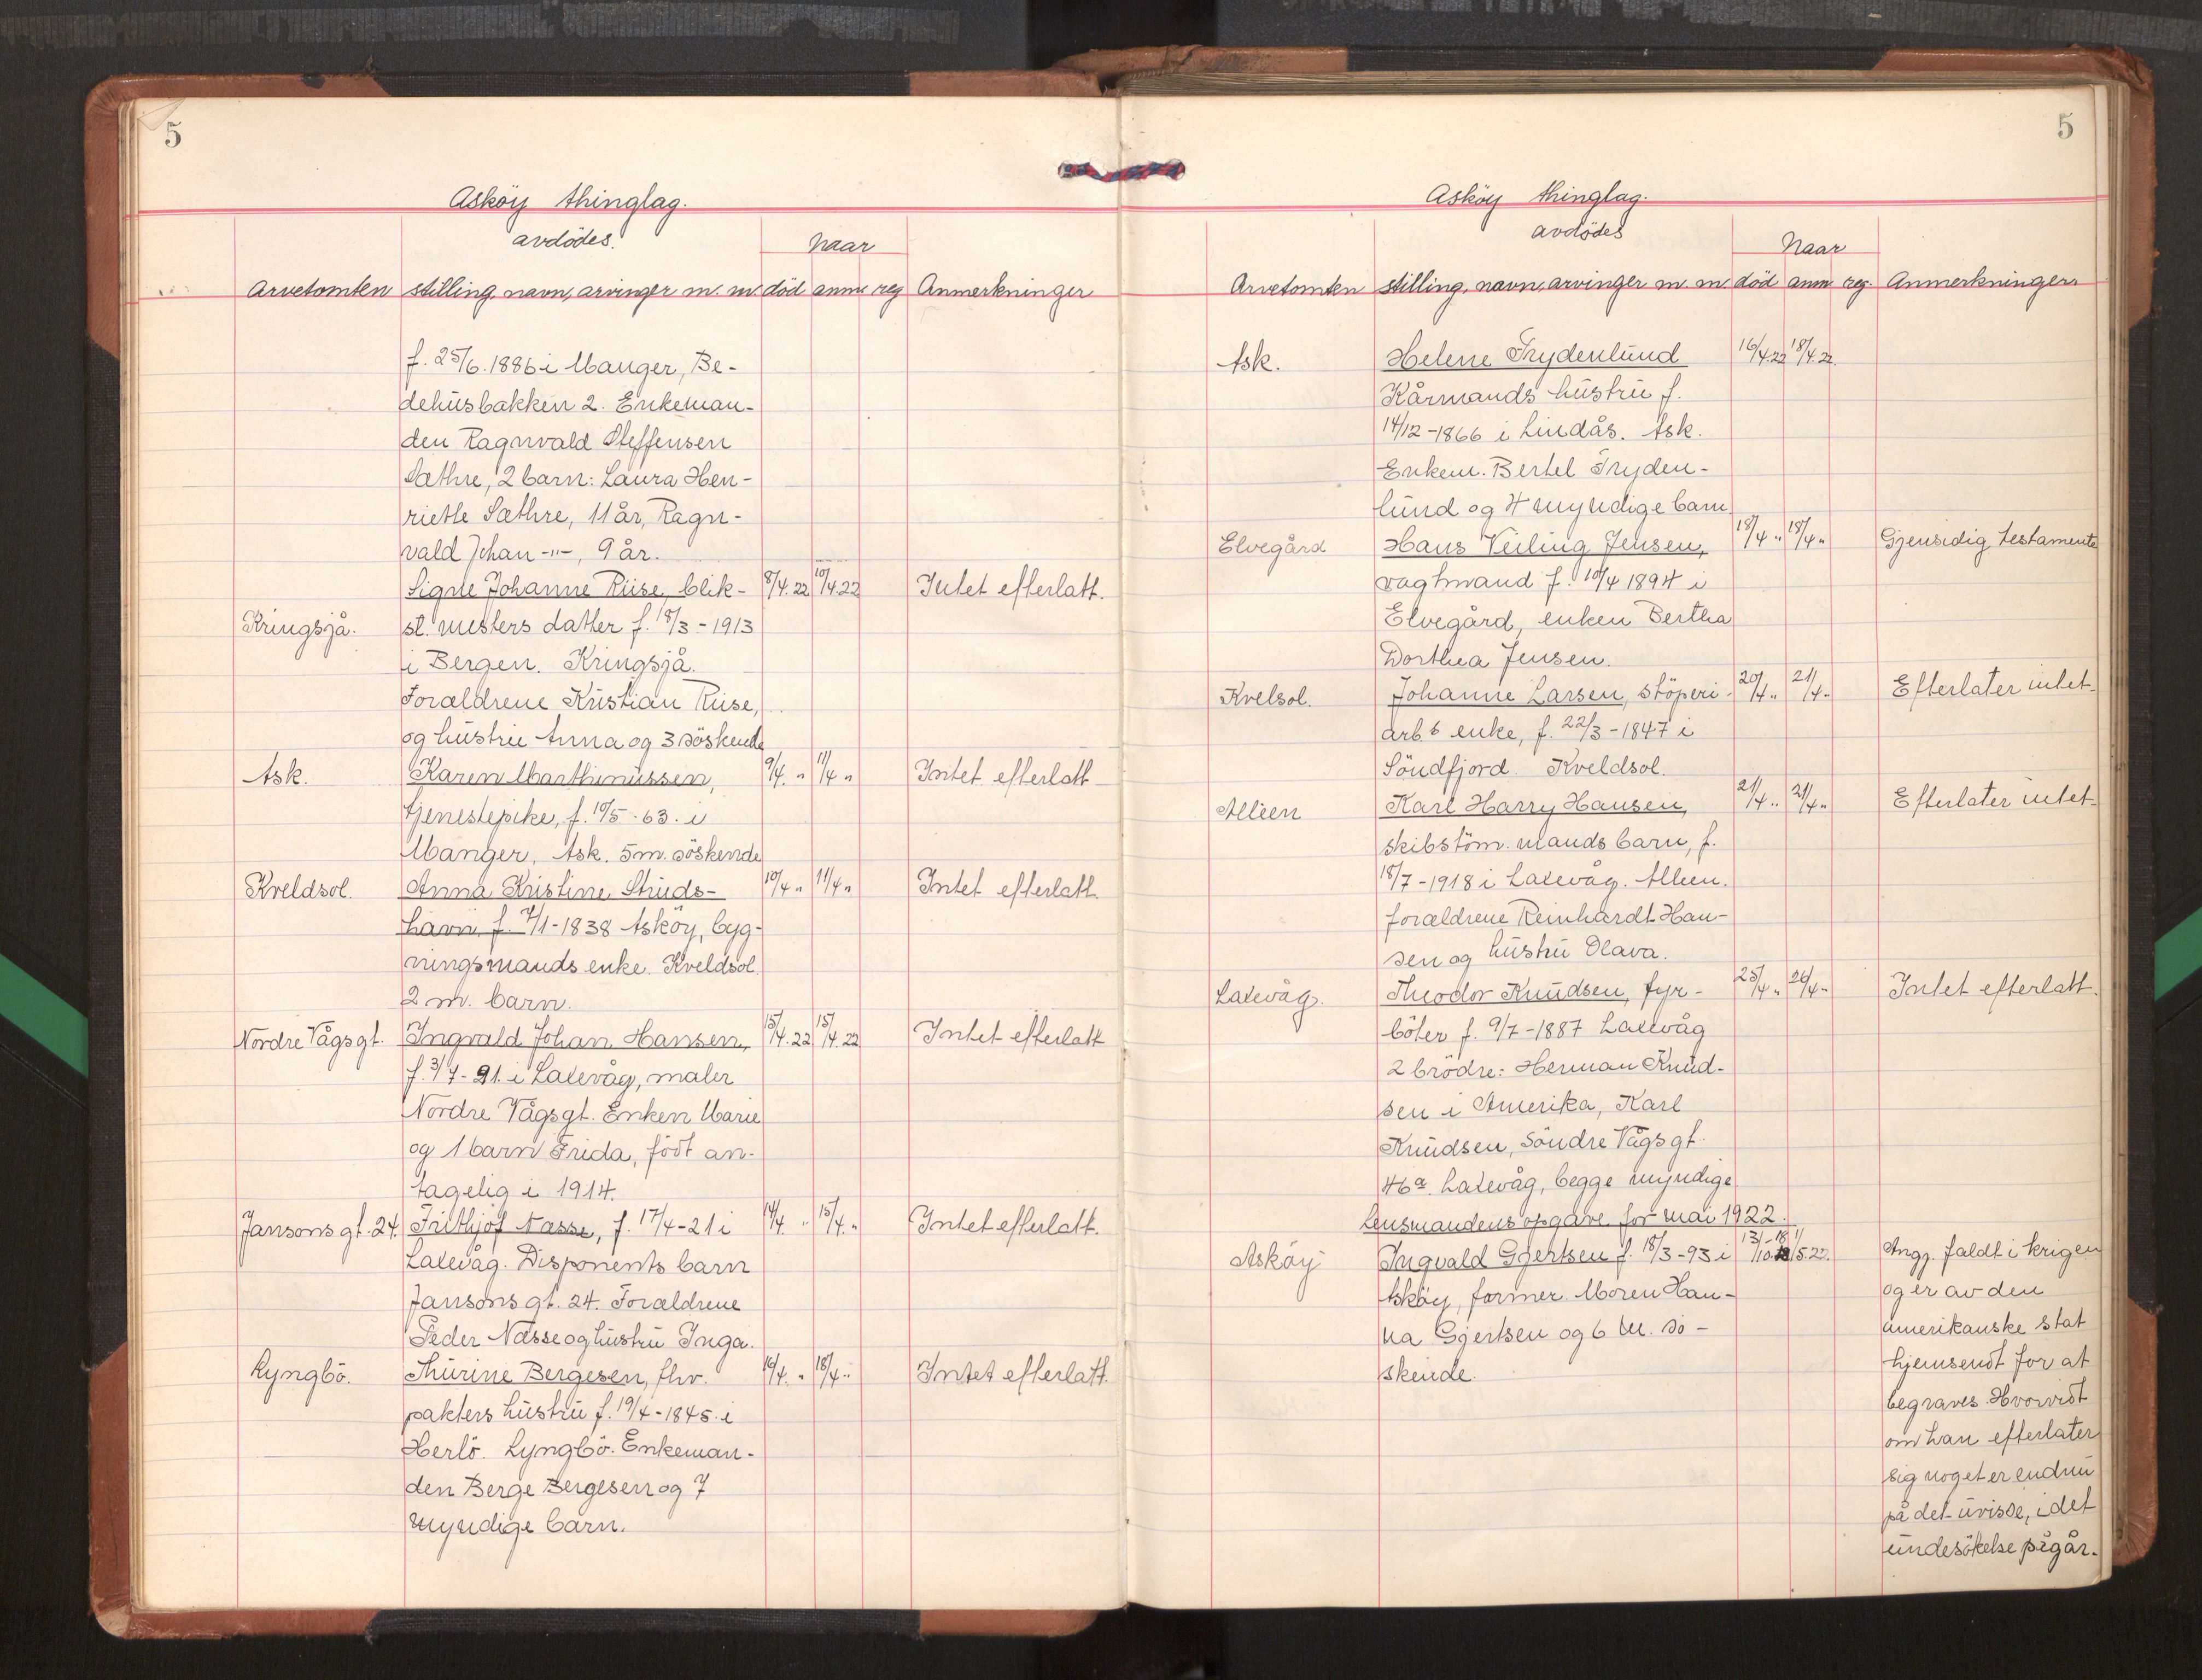 5
Asköy thinglag.
avdödes.
Naar
Arvetomten stilling, navn, arvinger m. m. död anm reg Anmerkninger
f. 25/6. 1886 i Manger, Be-
dehusbakken 2. Enkeman-
den Ragnvald Steffensen
Sæthre, 2 barn: Laura Hen-
riette Sæthre, 11 år, Ragn-
vald Johan -"-, 9 år.
Signe Johanne Riise, blik- 8/4.22 10/4.22 Intet efterlatt.
Kringsjå. sl. mesters datter f. 18/3 - 1913
i Bergen. Kringsjå.
Forældrene Kristian Riise,
og hustru Anna og 3 söskende
Ask. Karen Marthinussen, 9/4. " 11/4 " Intet efterlatt
tjenestepike, f. 10/5. 63. i
Manger, Ask. 5 m. söskende
Kveldsol. Anna Kristine Struds- 10/4 " 11/4 " Intet efterlatt.
havn, f. 7/1 - 1838 Asköy, byg-
ningsmands enke. Kveldsol.
2 m. barn.
Nordre Vågsgt. Ingvald Johan Hansen, 15/4.22 15/4.22 Intet efterlatt
f. 3/7 - 91. i Laxevåg, maler
Nordre Vågsgt. Enken Marie
og 1 barn Frida, födt an-
tagelig i 1914.
Jansonsgt. 24. Frithjof Næsse, f. 17/4 - 21 i 14/4 " 15/4. " Intet efterlatt.
Laxevåg. Disponents barn
Jansonsgt. 24. Forældrene
Peder Næsse og hustru Inga.
Lyngbö. Thurine Bergesen, fhv. 16/4. " 18/4 " Intet efterlatt.
pakters hustru f. 19/4 - 1845. i
Herlö. Lyngbö. Enkeman-
den Berge Bergesen og 7
myndige barn.
5
Asköy thinglag.
avdödes
Naar
Arvetomten stilling, navn, arvinger m. m. död anm reg. Anmerkninger
Ask. Helene Frydenlund 16/4.22 18/4.22.
Kårmands hustru f.
14/12 - 1866 i Lindås. Ask.
Enkem. Bertel Fryden-
lund og 4 myndige barn
Elvegård Hans Veiling Jensen, 18/4 " 18/4 " Gjensidig testamente
vagtmand f. 10/4 1894 i
Elvegård, enken Bertha
Dorthea Jensen.
Kvelsol. Johanne Larsen, støperi- 20/4 " 21/4 " Efterlater intet.
arb.s enke, f. 22/3 - 1847 i
Söndfjord. Kveldsol.
Alleen Karl Harry Hansen, 21/4 " 21/4 " Efterlater intet.
skibstöm. mands barn, f.
18/7 - 1918 i Laxevåg. Alleen.
forældrene Reinhardt Han-
sen og hustru Olava.
Laxevåg. Theodor Knudsen, fyr- 25/4 " 26/4 " Intet efterlatt.
böter f. 9/7 - 1887 Laxevåg
2 brödre: Herman Knud-
sen i Amerika, Karl
Knudsen, Söndre Vågsgt.
46a. Laxevåg, begge myndige
Lensmandens opgave for mai 1922.
Asköy Ingvald Gjertsen f. 18/3 - 93 i 13/10-18 1/5 22. Angj. faldt i krigen
Asköy, former. Moren Han- og er av den
na Gjertsen og 6 m. sö- amerikanske stat
skende. hjemsendt for at
begraves. Hvorvidt
om han efterlater
sig noget er endnu
på det uvisse, idet
undesökelse pågår.